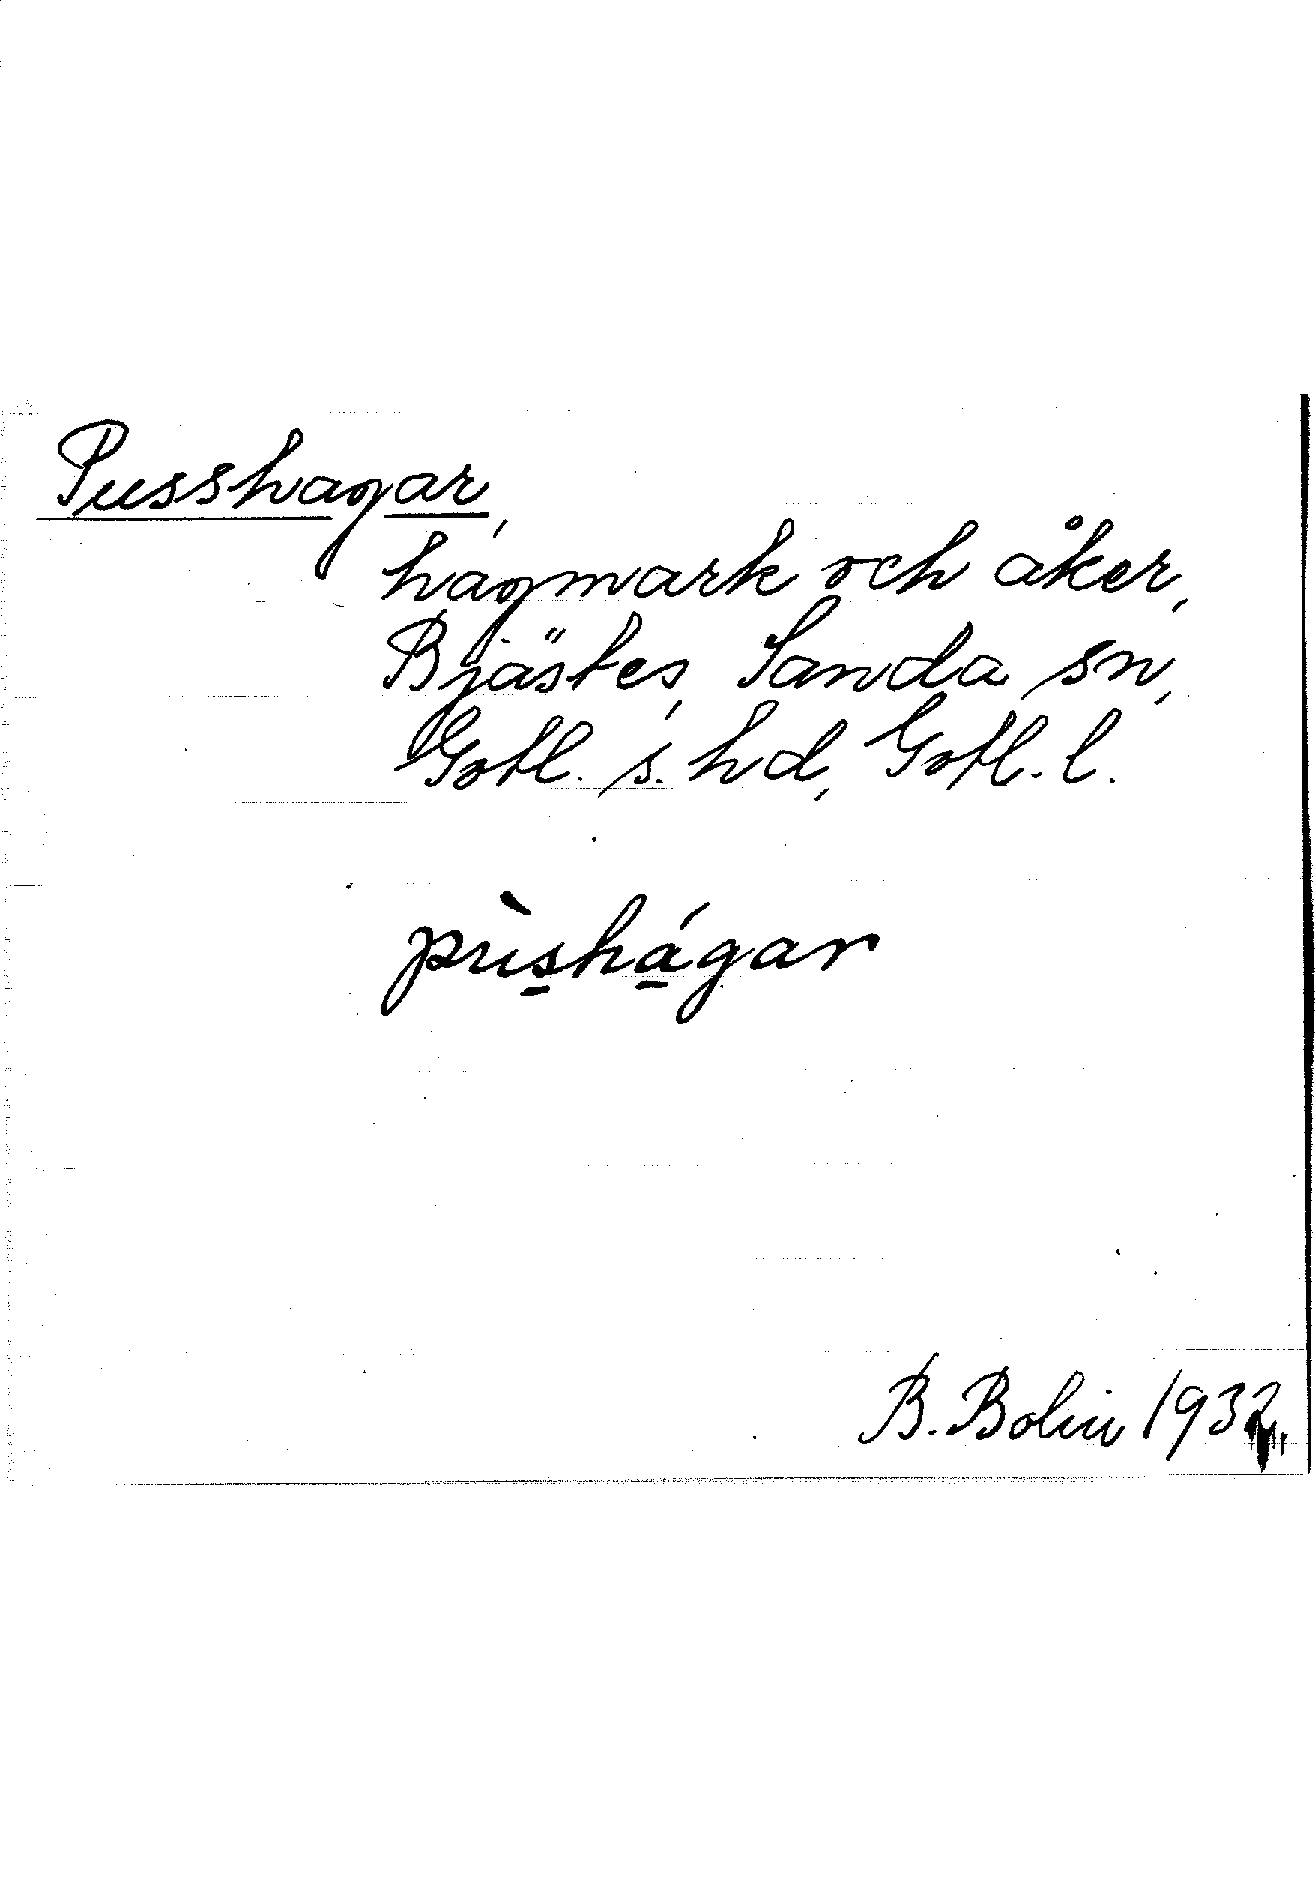 Pusshagar,
hagmark och åker,
Bjästes, Sanda sn,
Gotl. s. hd, Gotl. l.
pùs̲há̲gar
B. Bolin 1932.